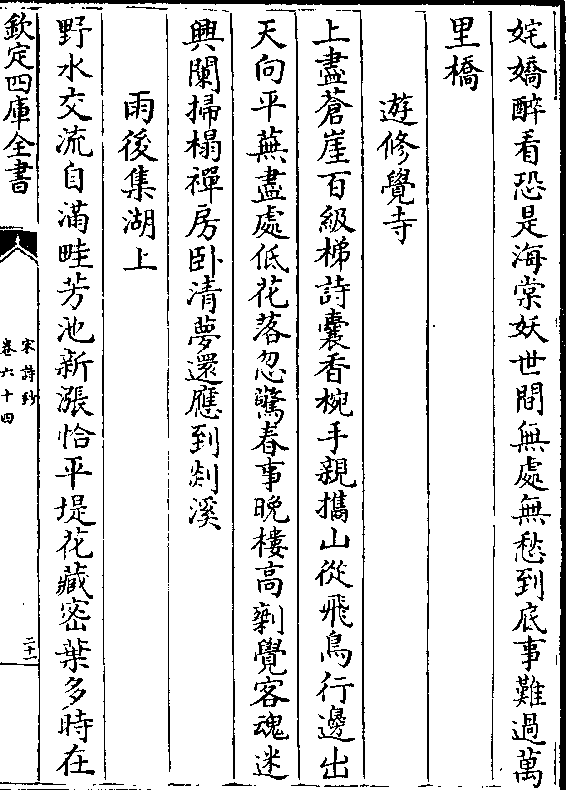 姹嬌醉看恐是海棠妖世間無處無愁到底事難過萬
里橋
遊修覺寺
上盡蒼崖百級梯詩囊香椀手親攜山從飛鳥行邊出
天向平蕪盡處低花落忽驚春事晚樓高剰覺客魂迷
興闌掃榻禪房卧清夢還應到剡溪
雨後集湖上
野水交流自滿畦芳池新漲恰平堤花藏密葉多時在
欽定四庫全書
宋詩鈔
卷六十四
二十一